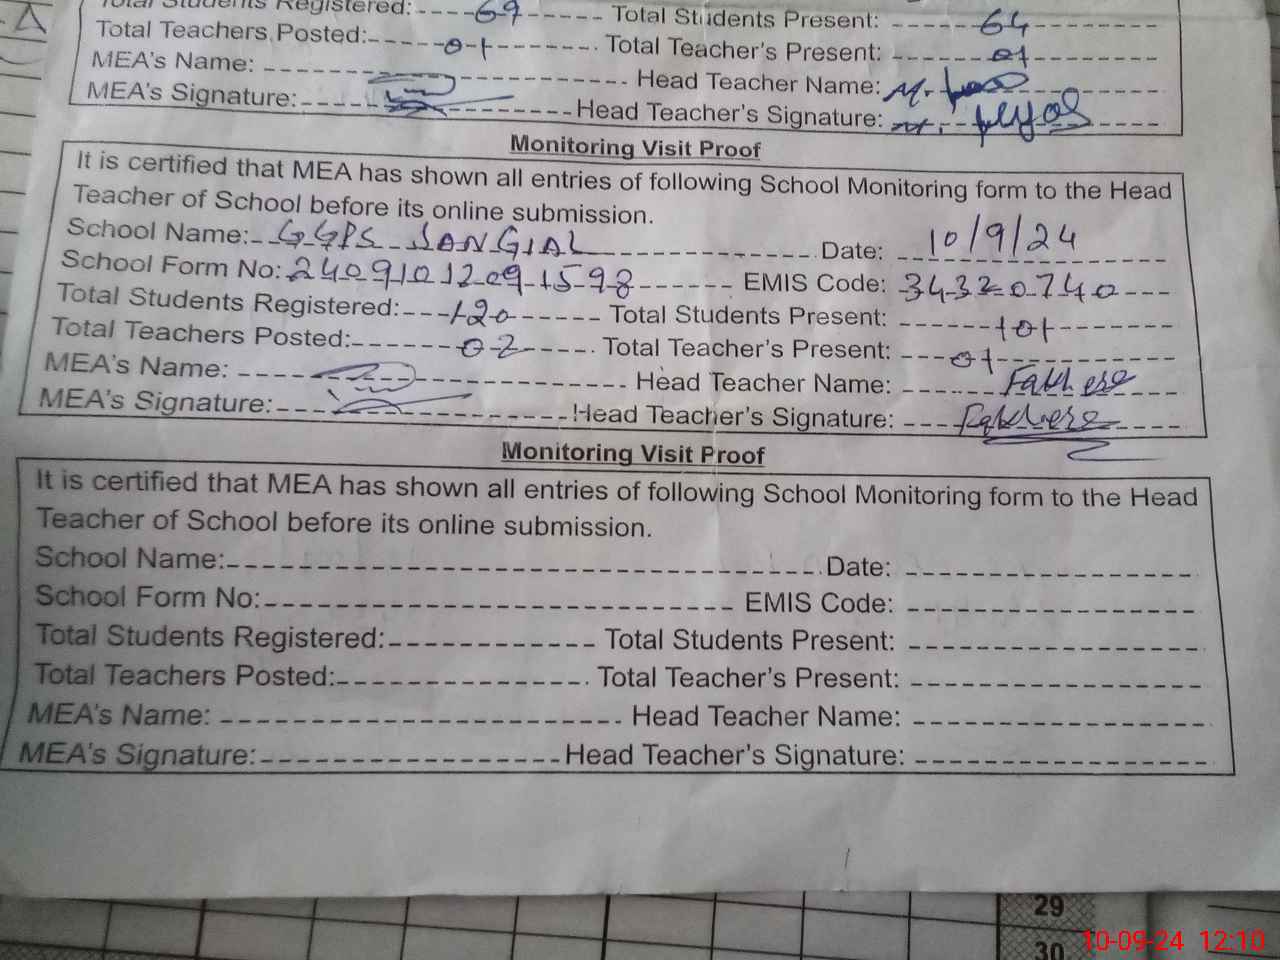 Total Students Registered: 69 Total Students Present: 64
Total Teachers Posted: 01 Total Teacher's Present: 01
MEA's Name: Head Teacher Name: M.
MEA's Signature: Head Teacher's Signature:
Monitoring Visit Proof
It is certified that MEA has shown all entries of following School Monitoring form to the Head
Teacher of School before its online submission.
School Name: GGPS JANGIAL Date: 10/9/24
School Form No: 24091012091598 EMIS Code: 34320740
Total Students Registered: 120 Total Students Present: 101
Total Teachers Posted: 02 Total Teacher's Present: 01
MEA's Name: Head Teacher Name:
MEA's Signature: Head Teacher's Signature:
Monitoring Visit Proof
It is certified that MEA has shown all entries of following School Monitoring form to the Head
Teacher of School before its online submission.
School Name: Date:
School Form No: EMIS Code:
Total Students Registered: Total Students Present:
Total Teachers Posted: Total Teacher's Present:
MEA's Name: Head Teacher Name:
MEA's Signature: Head Teacher's Signature:
29
30
10-09-24 12:10